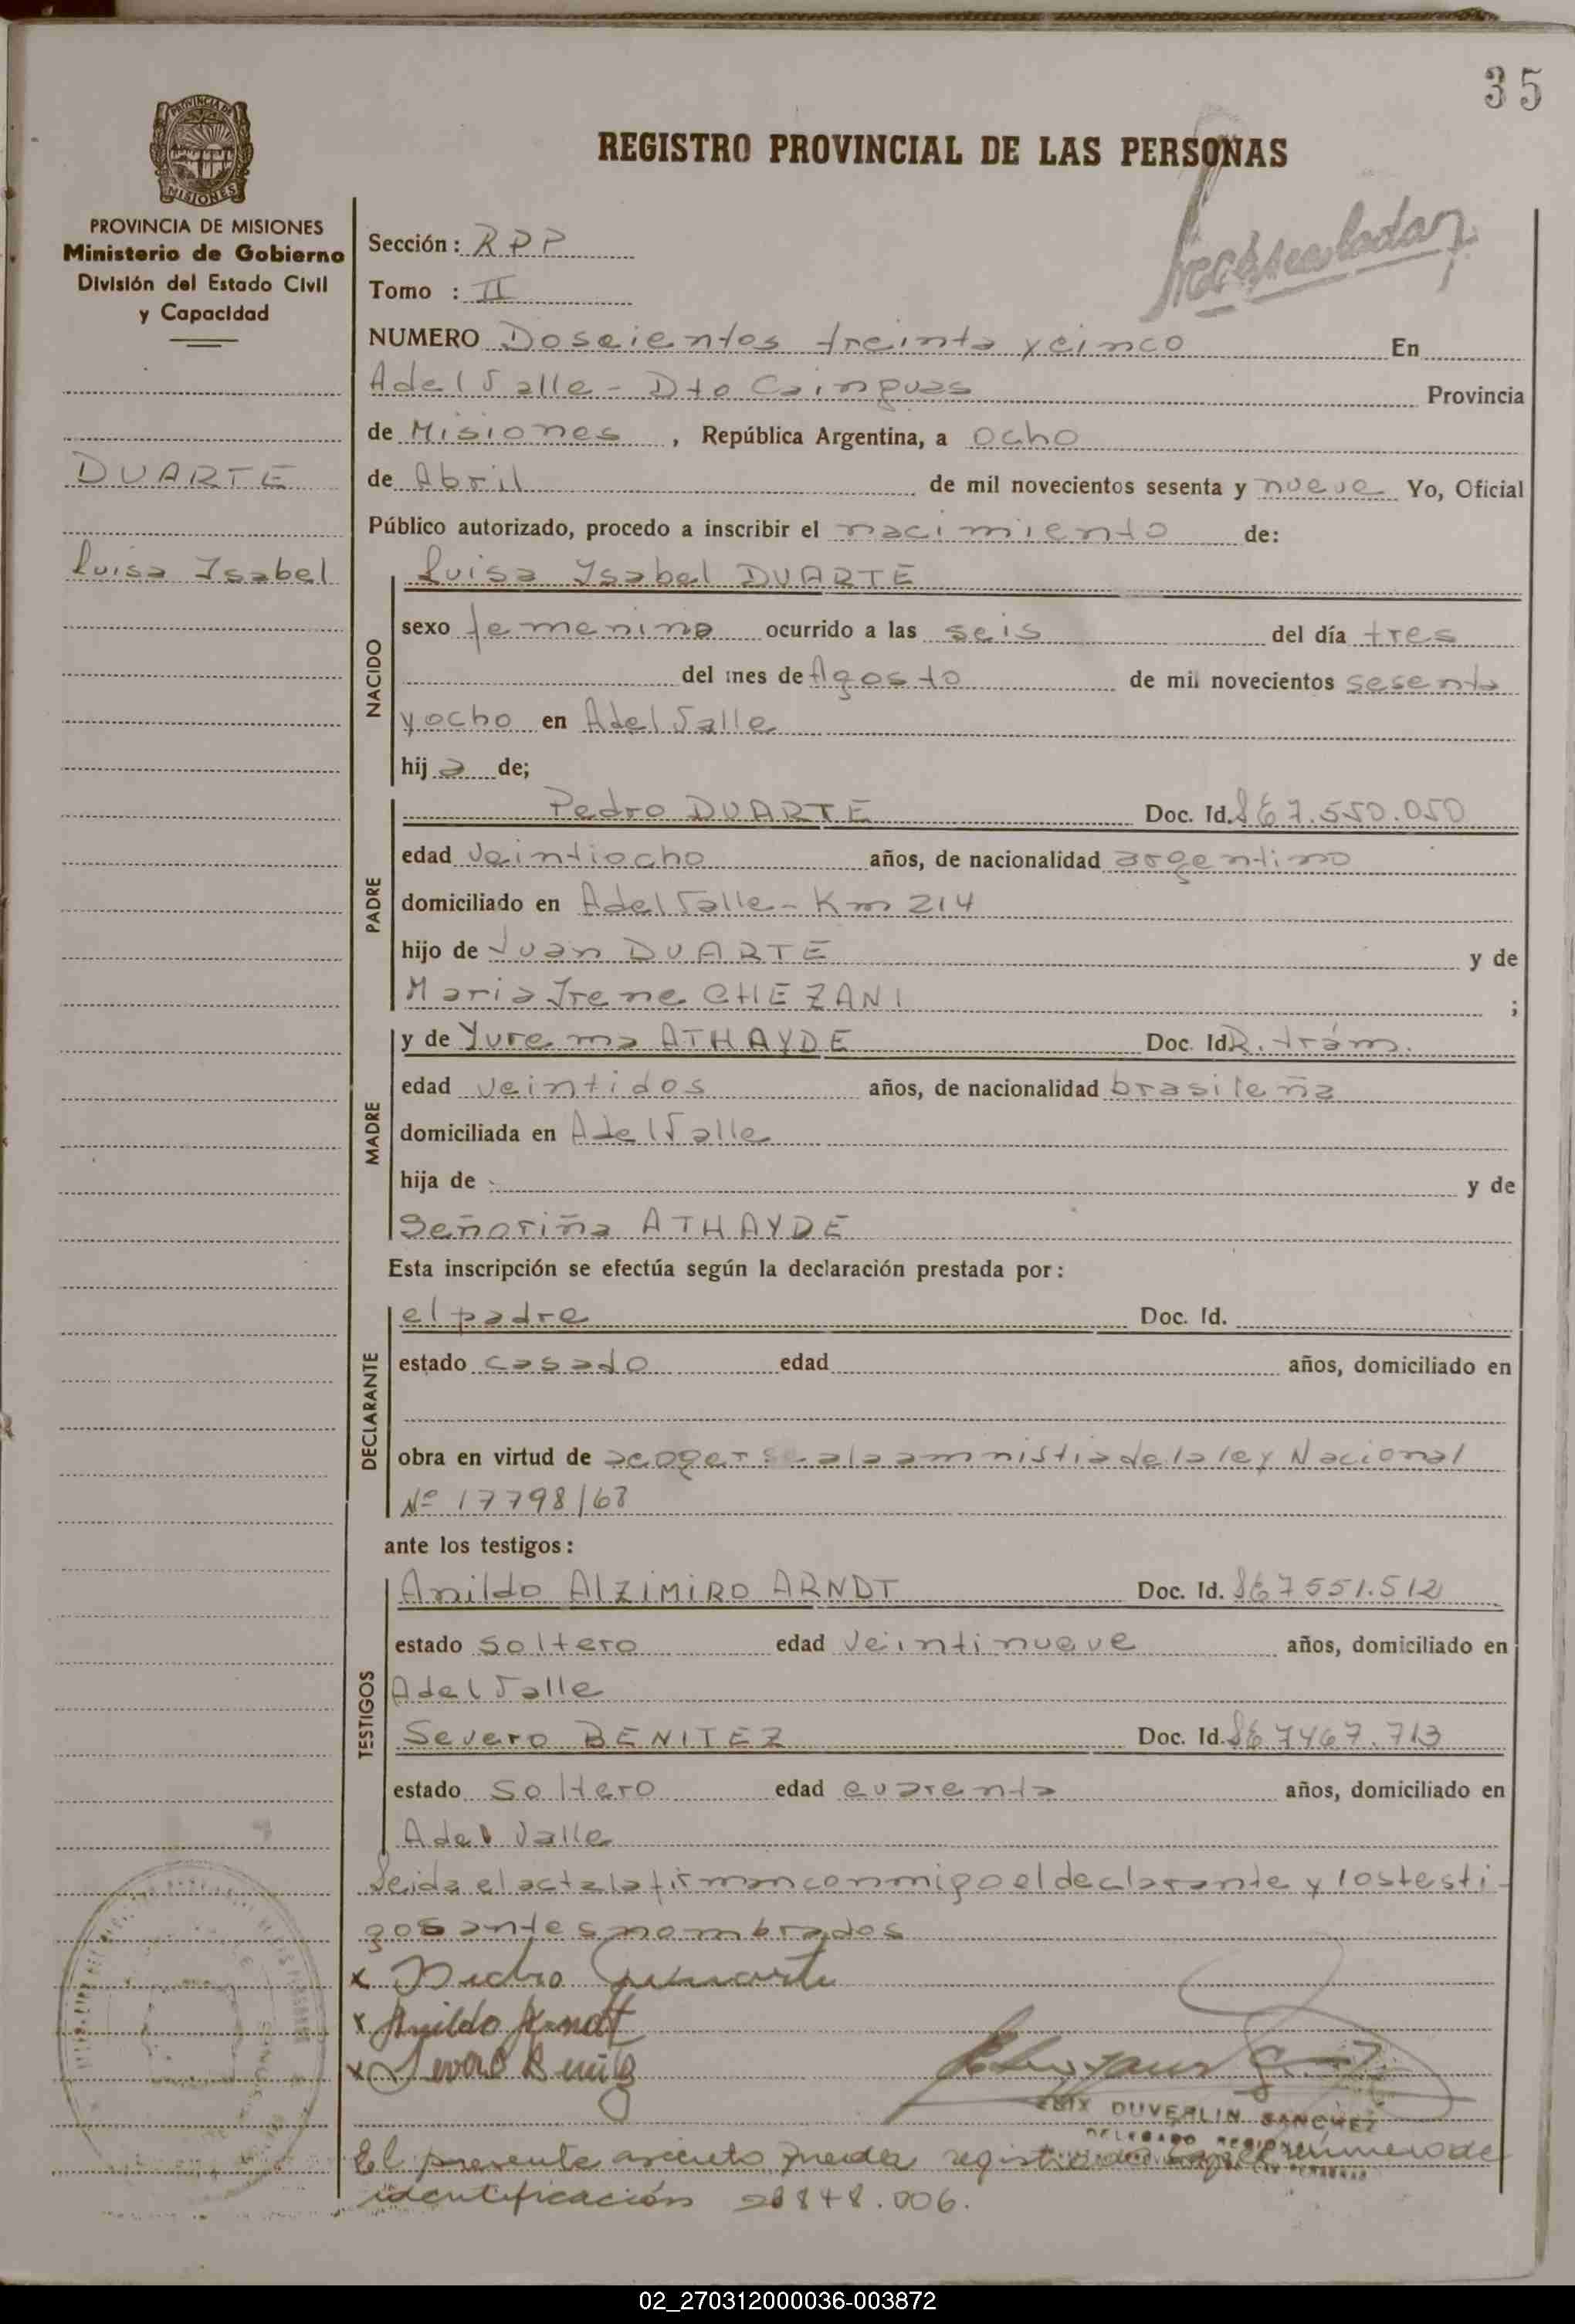 35
PROVINCIA DE
MISIONES
REGISTRO PROVINCIAL DE LAS PERSONAS
PROVINCIA DE MISIONES
Ministerio de Gobierno
División del Estado Civil
y Capacidad
DUARTE
Luisa Isabel
Sección: RPP
Tomo : II
NUMERO Doscientos treinta y cinco En
A del Valle - Dto Cainguas Provincia
de Misiones, República Argentina, a ocho
de Abril de mil novecientos sesenta y nueve Yo, Oficial
Público autorizado, procedo a inscribir el nacimiento de:
NACIDO
Luisa Ysabel DUARTE
sexo femenino ocurrido a las seis del día tres
del mes de Agosto de mil novecientos sesenta
y ocho en A del Valle
hij a de;
PADRE
Pedro DUARTE Doc. Id. 7.550.050
edad veintiocho años, de nacionalidad argentino
domiciliado en A del Valle - Km 214
hijo de Juan DUARTE y de
Maria Irene CHEZANI ;
MADRE
y de Yurema ATHAYDE Doc. Id R. trám.
edad veintidos años, de nacionalidad brasileña
domiciliada en A del Valle
hija de y de
Señoriña ATHAYDE
Esta inscripción se efectúa según la declaración prestada por:
DECLARANTE
el padre Doc. Id.
estado casado edad años, domiciliado en
obra en virtud de acogerse a la amnistia de la ley Nacional
Nº 17798/68
ante los testigos:
TESTIGOS
Anildo AlZIMIRO ARNDT Doc. Id. 7551.512
estado soltero edad veintinueve años, domiciliado en
A del Valle
Severo BENITEZ Doc. Id. 7467.713
estado soltero edad cuarenta años, domiciliado en
A del Valle
Leida el acta la firman conmigo el declarante y los testi-
gos antes nombrados
x Pedro Duarte
x Anildo Arndt
x Severo
DUVERLIN SANCHEZ
DELEGADO
El presente asiento queda registrado numero de
identificación 20848.006.
02_270312000036-003872